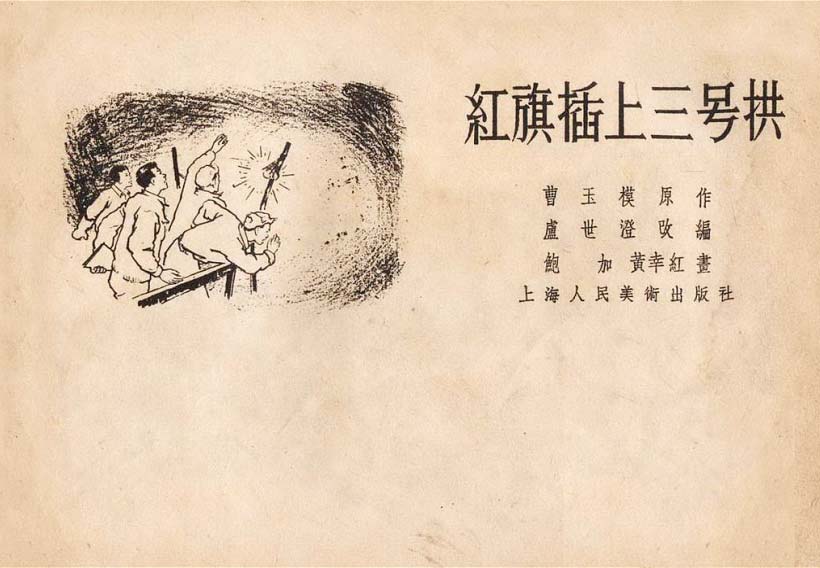 紅旗插上三号拱
曹玉模原作
盧世澄改編
鮑加 黃幸紅畫
上海人民美術出版社